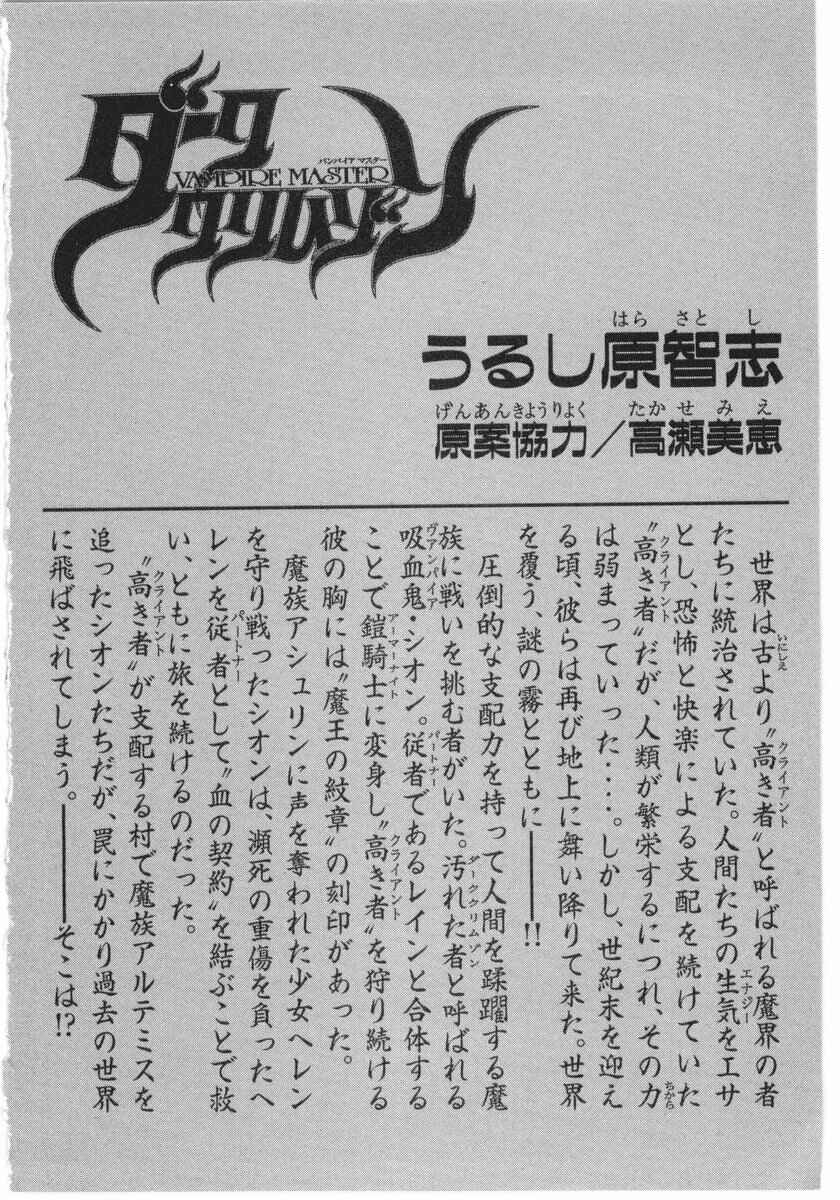 ダーク
バンパイア マスター
VAMPIRE MASTER
クリムゾン
はら さと し
うるし原智志
げんあんきようりよく たか せ み え
原案協力／高瀬美恵
世界は古より〝高き者〟と呼ばれる魔界の者
いにしえ クライアント
たちに統治されていた。人間たちの生気をエサ
エナジー
とし、恐怖と快楽による支配を続けていた
〝高き者〟だが、人類が繁栄するにつれ、その力
クライアント ちから
は弱まっていった・・・・。しかし、世紀末を迎え
る頃、彼らは再び地上に舞い降りて来た。世界
を覆う、謎の霧とともに――!!
圧倒的な支配力を持って人間を蹂躙する魔
族に戦いを挑む者がいた。汚れた者と呼ばれる
ダーククリムゾン
吸血鬼・シオン。従者であるレインと合体する
ヴァンパイア パートナー
ことで鎧騎士に変身し〝高き者〟を狩り続ける
アーマーナイト クライアント
彼の胸には〝魔王の紋章〟の刻印があった。
魔族アシュリンに声を奪われた少女ヘレン
を守り戦ったシオンは、瀕死の重傷を負ったヘ
レンを従者として〝血の契約〟を結ぶことで救
パートナー
い、ともに旅を続けるのだった。
〝高き者〟が支配する村で魔族アルテミスを
クライアント
追ったシオンたちだが、罠にかかり過去の世界
に飛ばされてしまう。――そこは!?